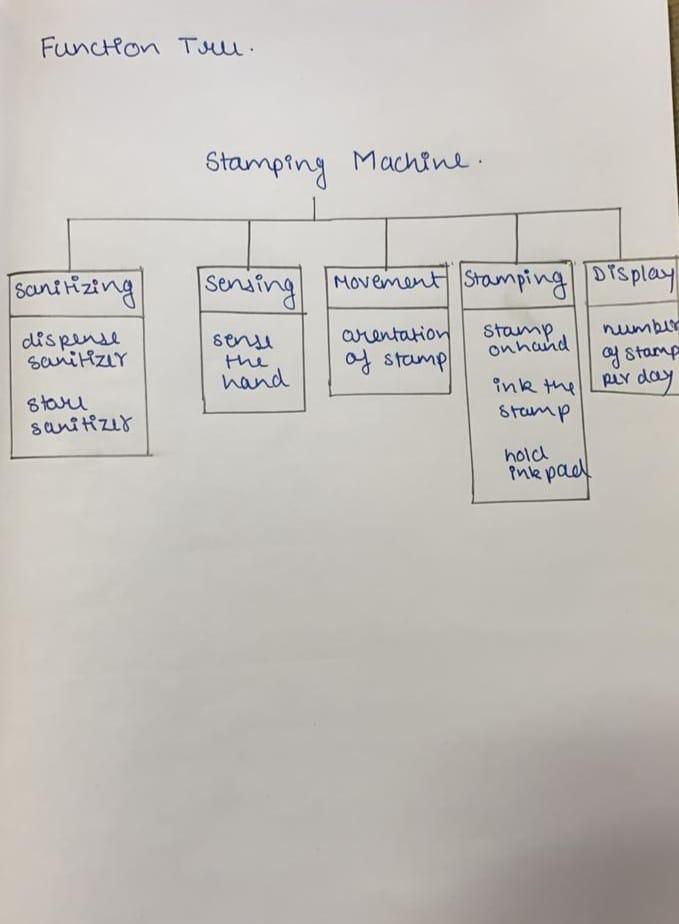 Function Tree.
Stamping Machine.
Sanitizing
dispense
sanitizer
store
sanitizer
Sensing
sense
the
hand
Movement
arentation
of stamp
Stamping
stamp
onhand
ink the
stamp
hold
ink pad
Display
number
of stamp
per day